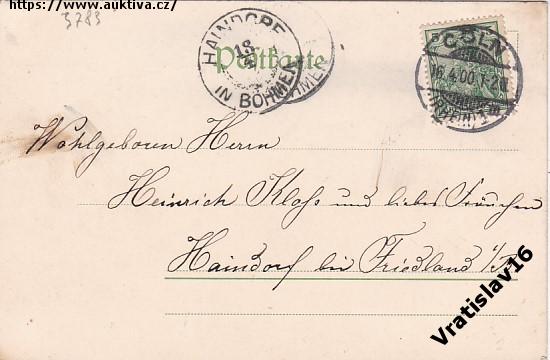 https://www.auktiva.cz/
3783
Postkarte
HAINDORF
18
IN BÖHMEN
HMEN
CÖLN
16.4.00
(RHEIN)
Wohlgeboren Herrn
Heinrich Kloss und liebes Frauchen
Haindorf bei Friedland i/B
Vratislav16